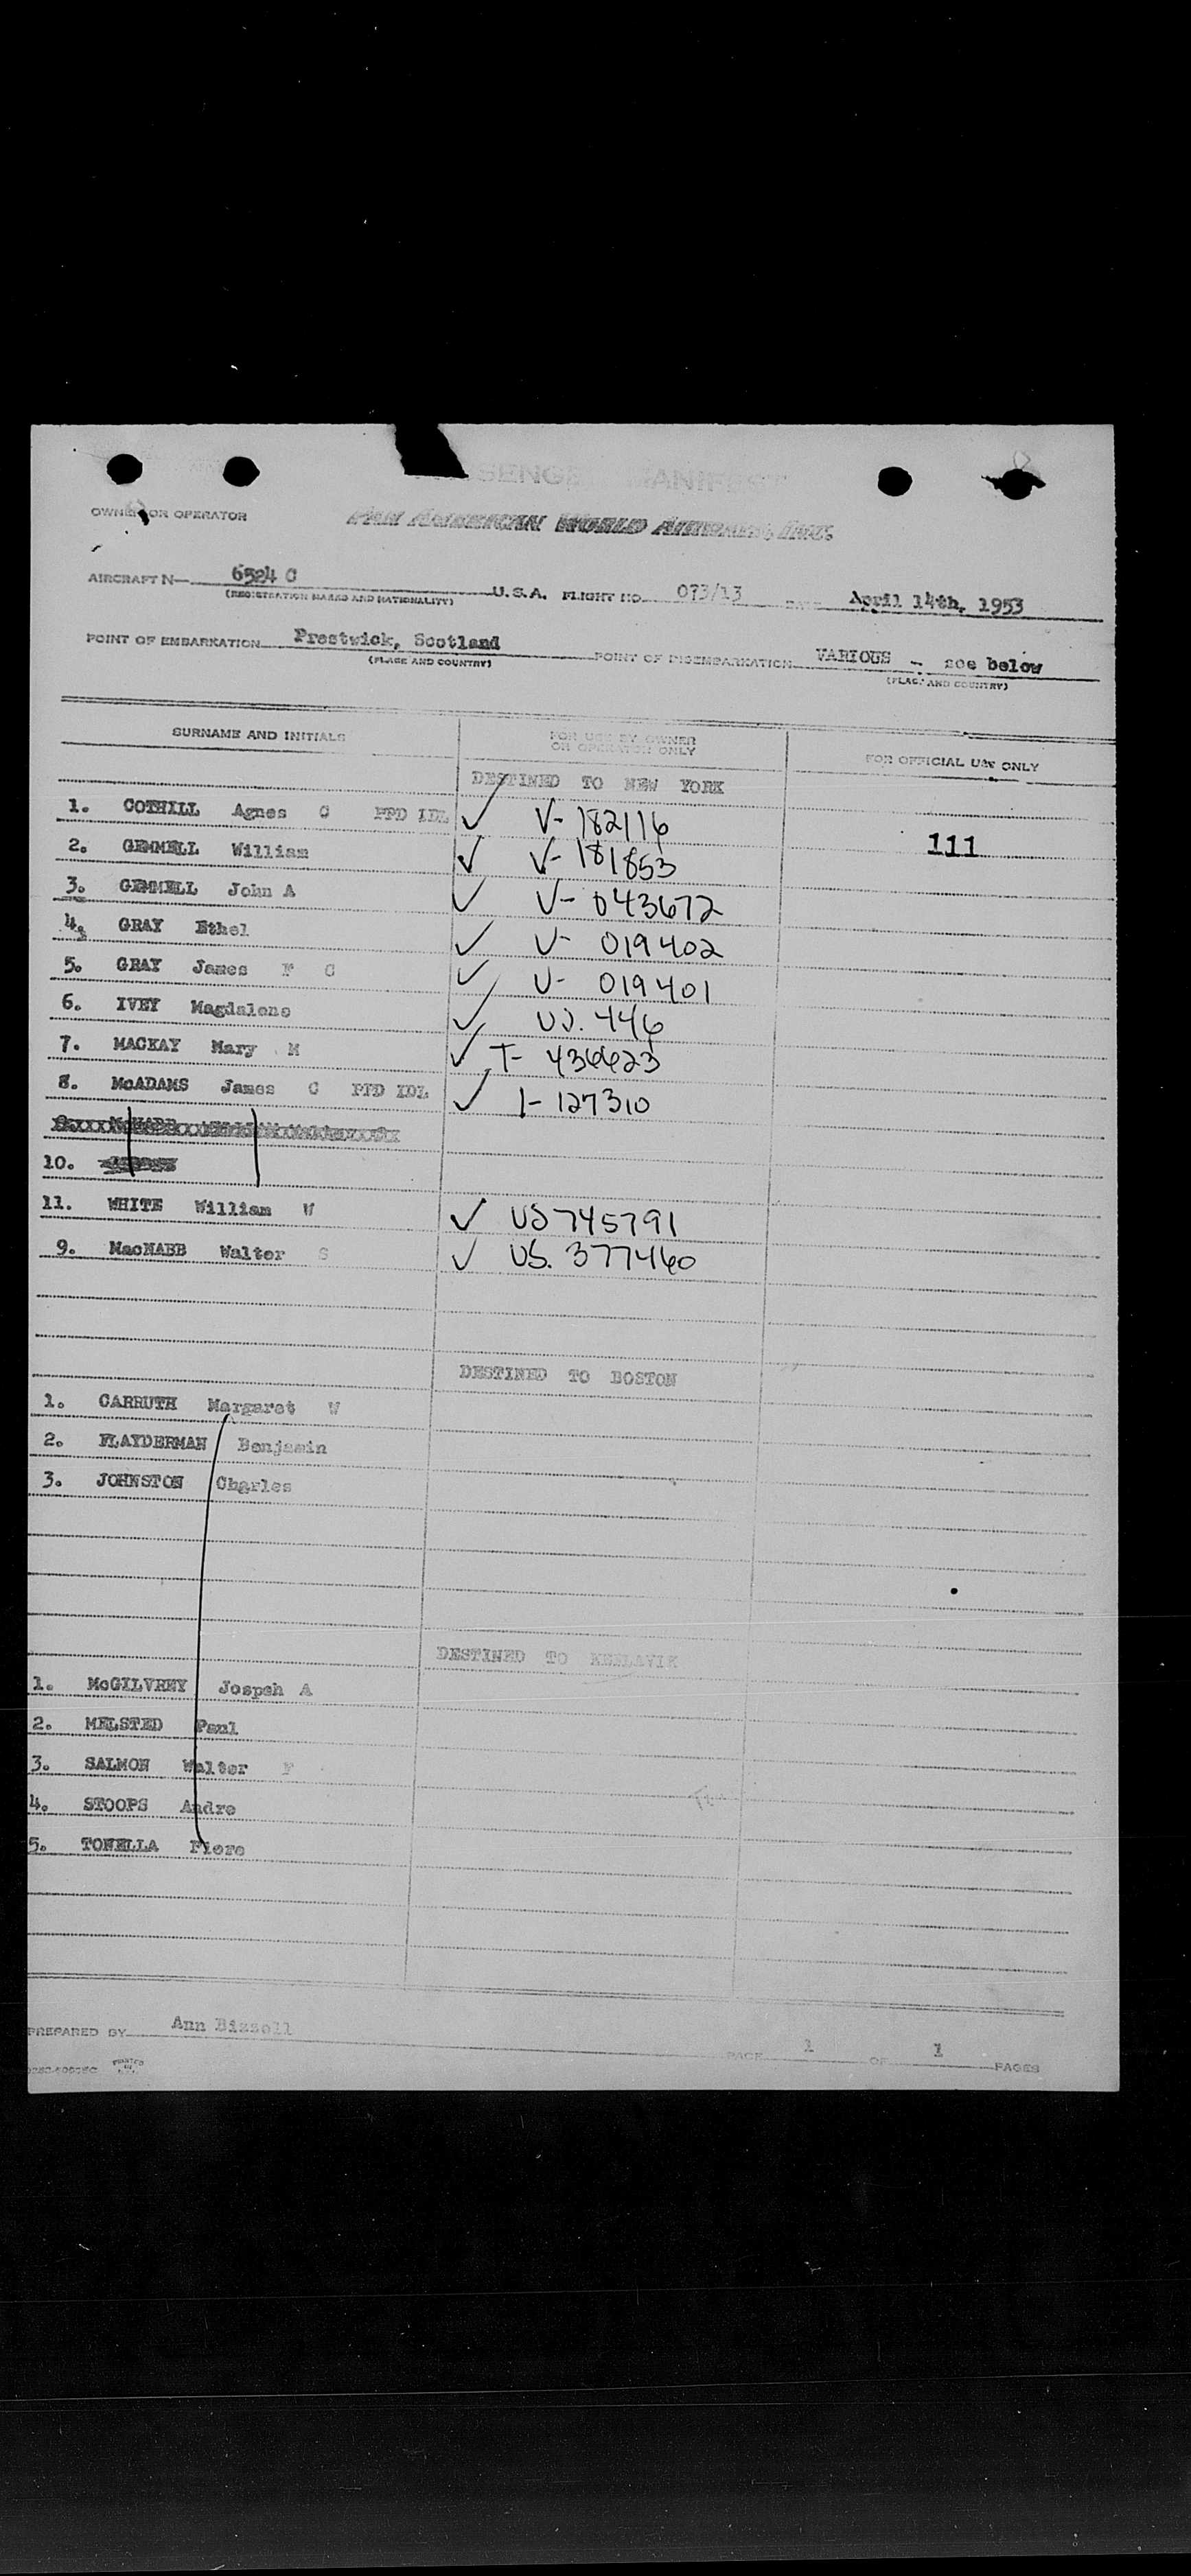 PASSENGER MANIFEST
OWNER OR OPERATOR PAN AMERICAN WORLD AIRWAYS, INC.
AIRCRAFT N— 6524 C U.S.A. FLIGHT NO. 073/13 DATE April 14th, 1953
(REGISTRATION MARKS AND NATIONALITY)
POINT OF EMBARKATION Prestwick, Scotland POINT OF DISEMBARKATION VARIOUS - see below
(PLACE AND COUNTRY) (PLACE AND COUNTRY)
SURNAME AND INITIALS FOR USE BY OWNER OR OPERATOR ONLY FOR OFFICIAL USE ONLY
DESTINED TO NEW YORK
1. COTHILL Agnes C PPD IDL ✓ V- 182116
2. GEMMELL William ✓ V- 181853 111
3. GEMMELL John A ✓ V- 043672
4. GRAY Ethel ✓ V- 019402
5. GRAY James F C ✓ V- 019401
6. IVEY Magdalene ✓ US. 446
7. MACKAY Mary M ✓ T- 436623
8. McADAMS James C PPD IDL ✓ I- 127310
10.
11. WHITE William W ✓ US 745791
9. MacNABB Walter S ✓ US. 377460
DESTINED TO BOSTON
1. CARRUTH Margaret W
2. FLAYDERMAN Benjamin
3. JOHNSTON Charles
DESTINED TO KEFLAVIK
1. McGILVREY Jospeh A
2. MELSTED Paul
3. SALMON Walter F
4. STOOPS Andre
5. TONELLA Piero
PREPARED BY Ann Bissell
PAGE 1 OF 1 PAGES
PRINTED IN U.S.A.